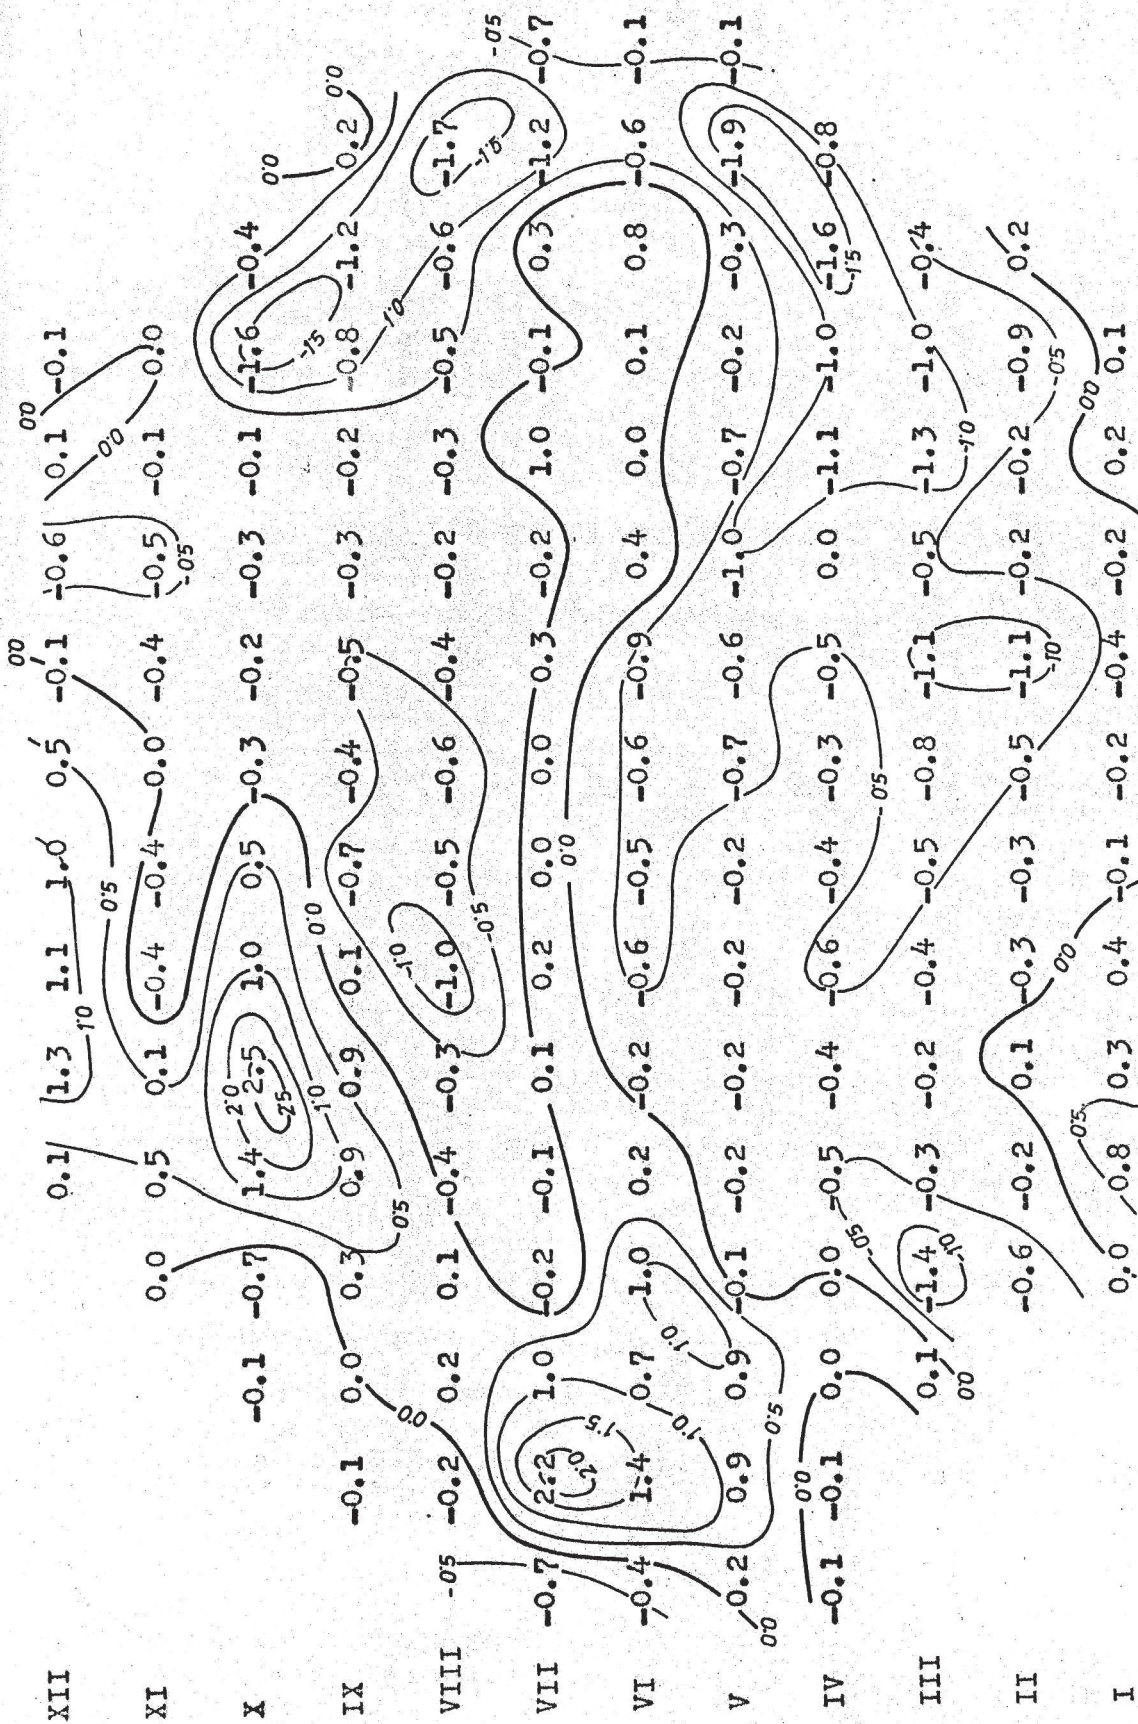 XII 0.1 1.3 1.1 1.0 0.5 -0.1 -0.6 0.1 -0.1
XI 0.0 0.5 0.1 -0.4 -0.4 0.0 -0.4 -0.5 -0.1 0.0
X -0.1 -0.7 1.4 2.5 1.0 0.5 -0.3 -0.2 -0.3 -0.1 -1.6 -0.4
IX -0.1 0.0 0.3 0.9 0.9 0.1 -0.7 -0.4 -0.5 -0.3 -0.2 -0.8 -1.2 0.2
VIII -0.2 0.2 0.1 -0.4 -0.3 -1.0 -0.5 -0.6 -0.4 -0.2 -0.3 -0.5 -0.6 -1.7
VII -0.7 2.2 1.0 -0.2 -0.1 0.1 0.2 0.0 0.0 0.3 -0.2 1.0 -0.1 0.3 -1.2 -0.7
VI -0.4 1.4 0.7 1.0 0.2 -0.2 -0.6 -0.5 -0.6 -0.9 0.4 0.0 0.1 0.8 -0.6 -0.1
V 0.2 0.9 0.9 -0.1 -0.2 -0.2 -0.2 -0.2 -0.7 -0.6 -1.0 -0.7 -0.2 -0.3 -1.9 -0.1
IV -0.1 -0.1 0.0 0.0 -0.5 -0.4 -0.6 -0.4 -0.3 -0.5 0.0 -1.1 -1.0 -1.6 -0.8
III 0.1 -1.4 -0.3 -0.2 -0.4 -0.5 -0.8 -1.1 -0.5 -1.3 -1.0 -0.4
II -0.6 -0.2 0.1 -0.3 -0.3 -0.5 -1.1 -0.2 -0.2 -0.9 0.2
I 0.0 0.8 0.3 0.4 -0.1 -0.2 -0.4 -0.2 0.2 0.1
0.0
0.0
1.0
0.5
0.0
-0.5
2.0
2.5
1.0
0.0
0.5
-1.5
0.0
0.0
0.0
-1.0
-1.0
-0.5
-0.5
-1.5
-0.5
2.0
1.5
1.0
1.0
0.0
0.0
0.5
0.0
-0.5
-0.5
-1.5
-1.0
-1.0
0.0
-1.0
-0.5
0.0
0.5
0.0